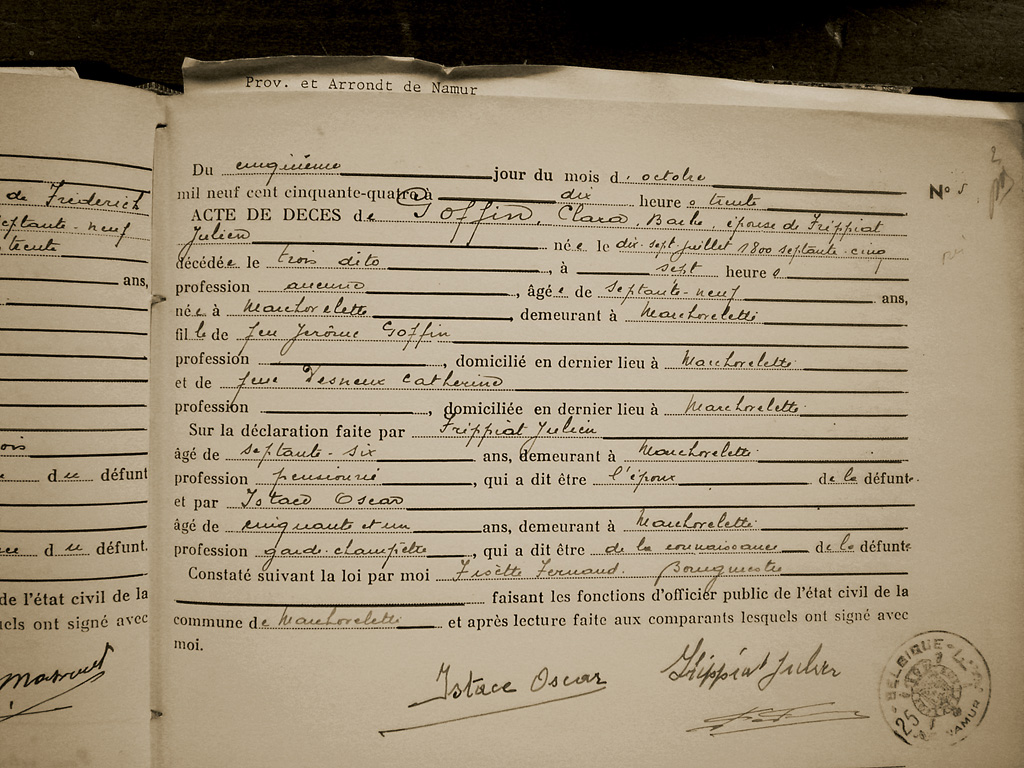 Prov. et Arrondt de Namur
de Frederich
septante-neuf
trente
ans,
d u défunt
d u défunt.
de l'état civil de la
uels ont signé avec
Du cinquième jour du mois d' octobre
N° 5
mil neuf cent cinquante-quatre à dix heure s trente
ACTE DE DECES de Goffin, Clara, Barbe, épouse de Frippiat
Julien née le dix-sept juillet 1800 septante-cinq
décédée le trois dito, à sept heure s
profession aucune, âgée de septante-neuf ans,
née à Marchovelette, demeurant à Marchovelette
fille de feu Jérôme Goffin
profession , domicilié en dernier lieu à Marchovelette
et de feue Desneux Catherine
profession , domiciliée en dernier lieu à Marchovelette
Sur la déclaration faite par Frippiat Julien
âgé de septante-six ans, demeurant à Marchovelette
profession pensionné, qui a dit être l'époux de la défunte.
et par Istace Oscar
âgé de cinquante et un ans, demeurant à Marchovelette
profession garde-champêtre, qui a dit être de la connaissance de la défunte
Constaté suivant la loi par moi Fisette Fernand. Bourgmestre
faisant les fonctions d'officier public de l'état civil de la
commune de Marchovelette et après lecture faite aux comparants lesquels ont signé avec
moi.
Istace Oscar Frippiat Julien
BELGIQUE
25
NAMUR